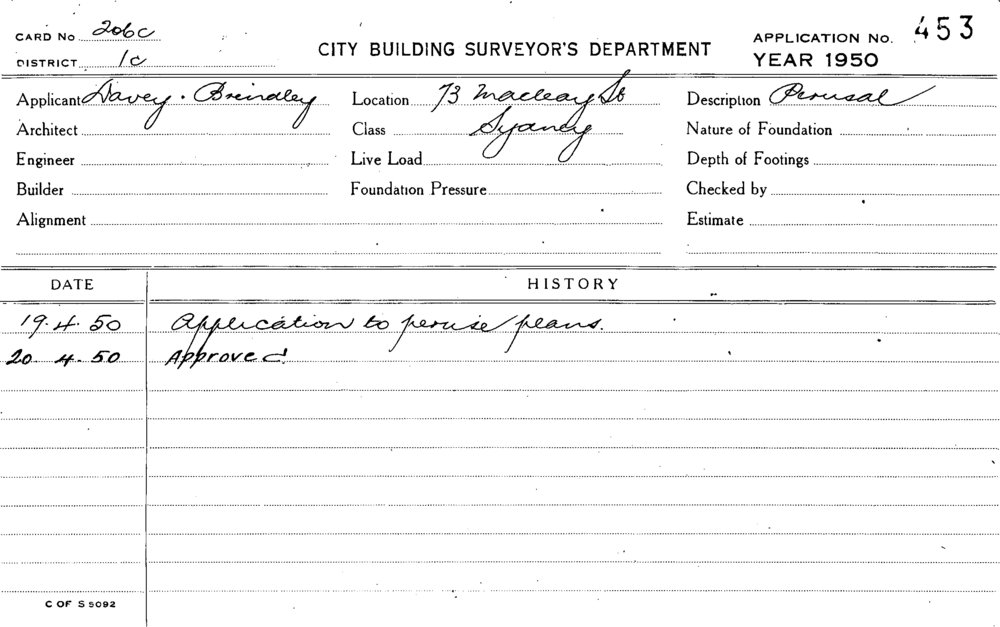 CARD No 206c
DISTRICT 1c
CITY BUILDING SURVEYOR'S DEPARTMENT
APPLICATION No. 453
YEAR 1950
Applicant Davey. Brindley
Location 73 Macleay St
Description Perusal
Architect
Class Sydney
Nature of Foundation
Engineer
Live Load
Depth of Footings
Builder
Foundation Pressure
Checked by
Alignment
Estimate
DATE HISTORY
19.4.50 Application to peruse plans.
20 4.50 Approved
C OF S 5092